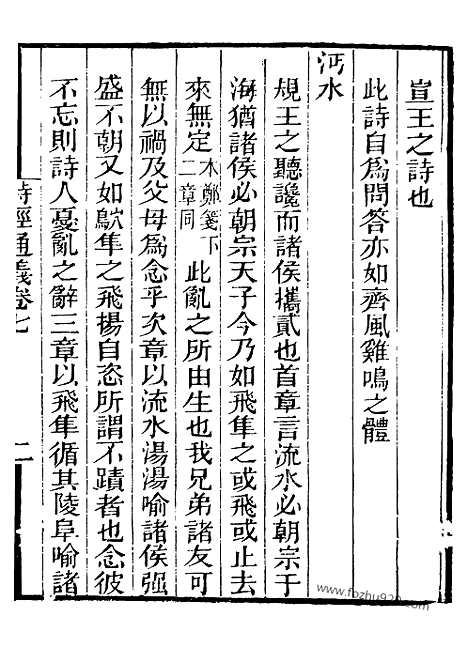 宣王之詩也
此詩自爲問答亦如齊風雞鳴之體
沔水
規王之聽讒而諸侯攜貳也首章言流水必朝宗于
海猶諸侯必朝宗天子今乃如飛隼之或飛或止去
來無定本鄭箋下二章同此亂之所由生也我兄弟諸友可
無以禍及父母爲念乎次章以流水湯湯喻諸侯強
盛不朝又如鴥隼之飛揚自恣所謂不蹟者也念彼
不忘則詩人憂亂之辭三章以飛隼循其陵阜喻諸
詩經通義卷七
二
www.fozhu920.com